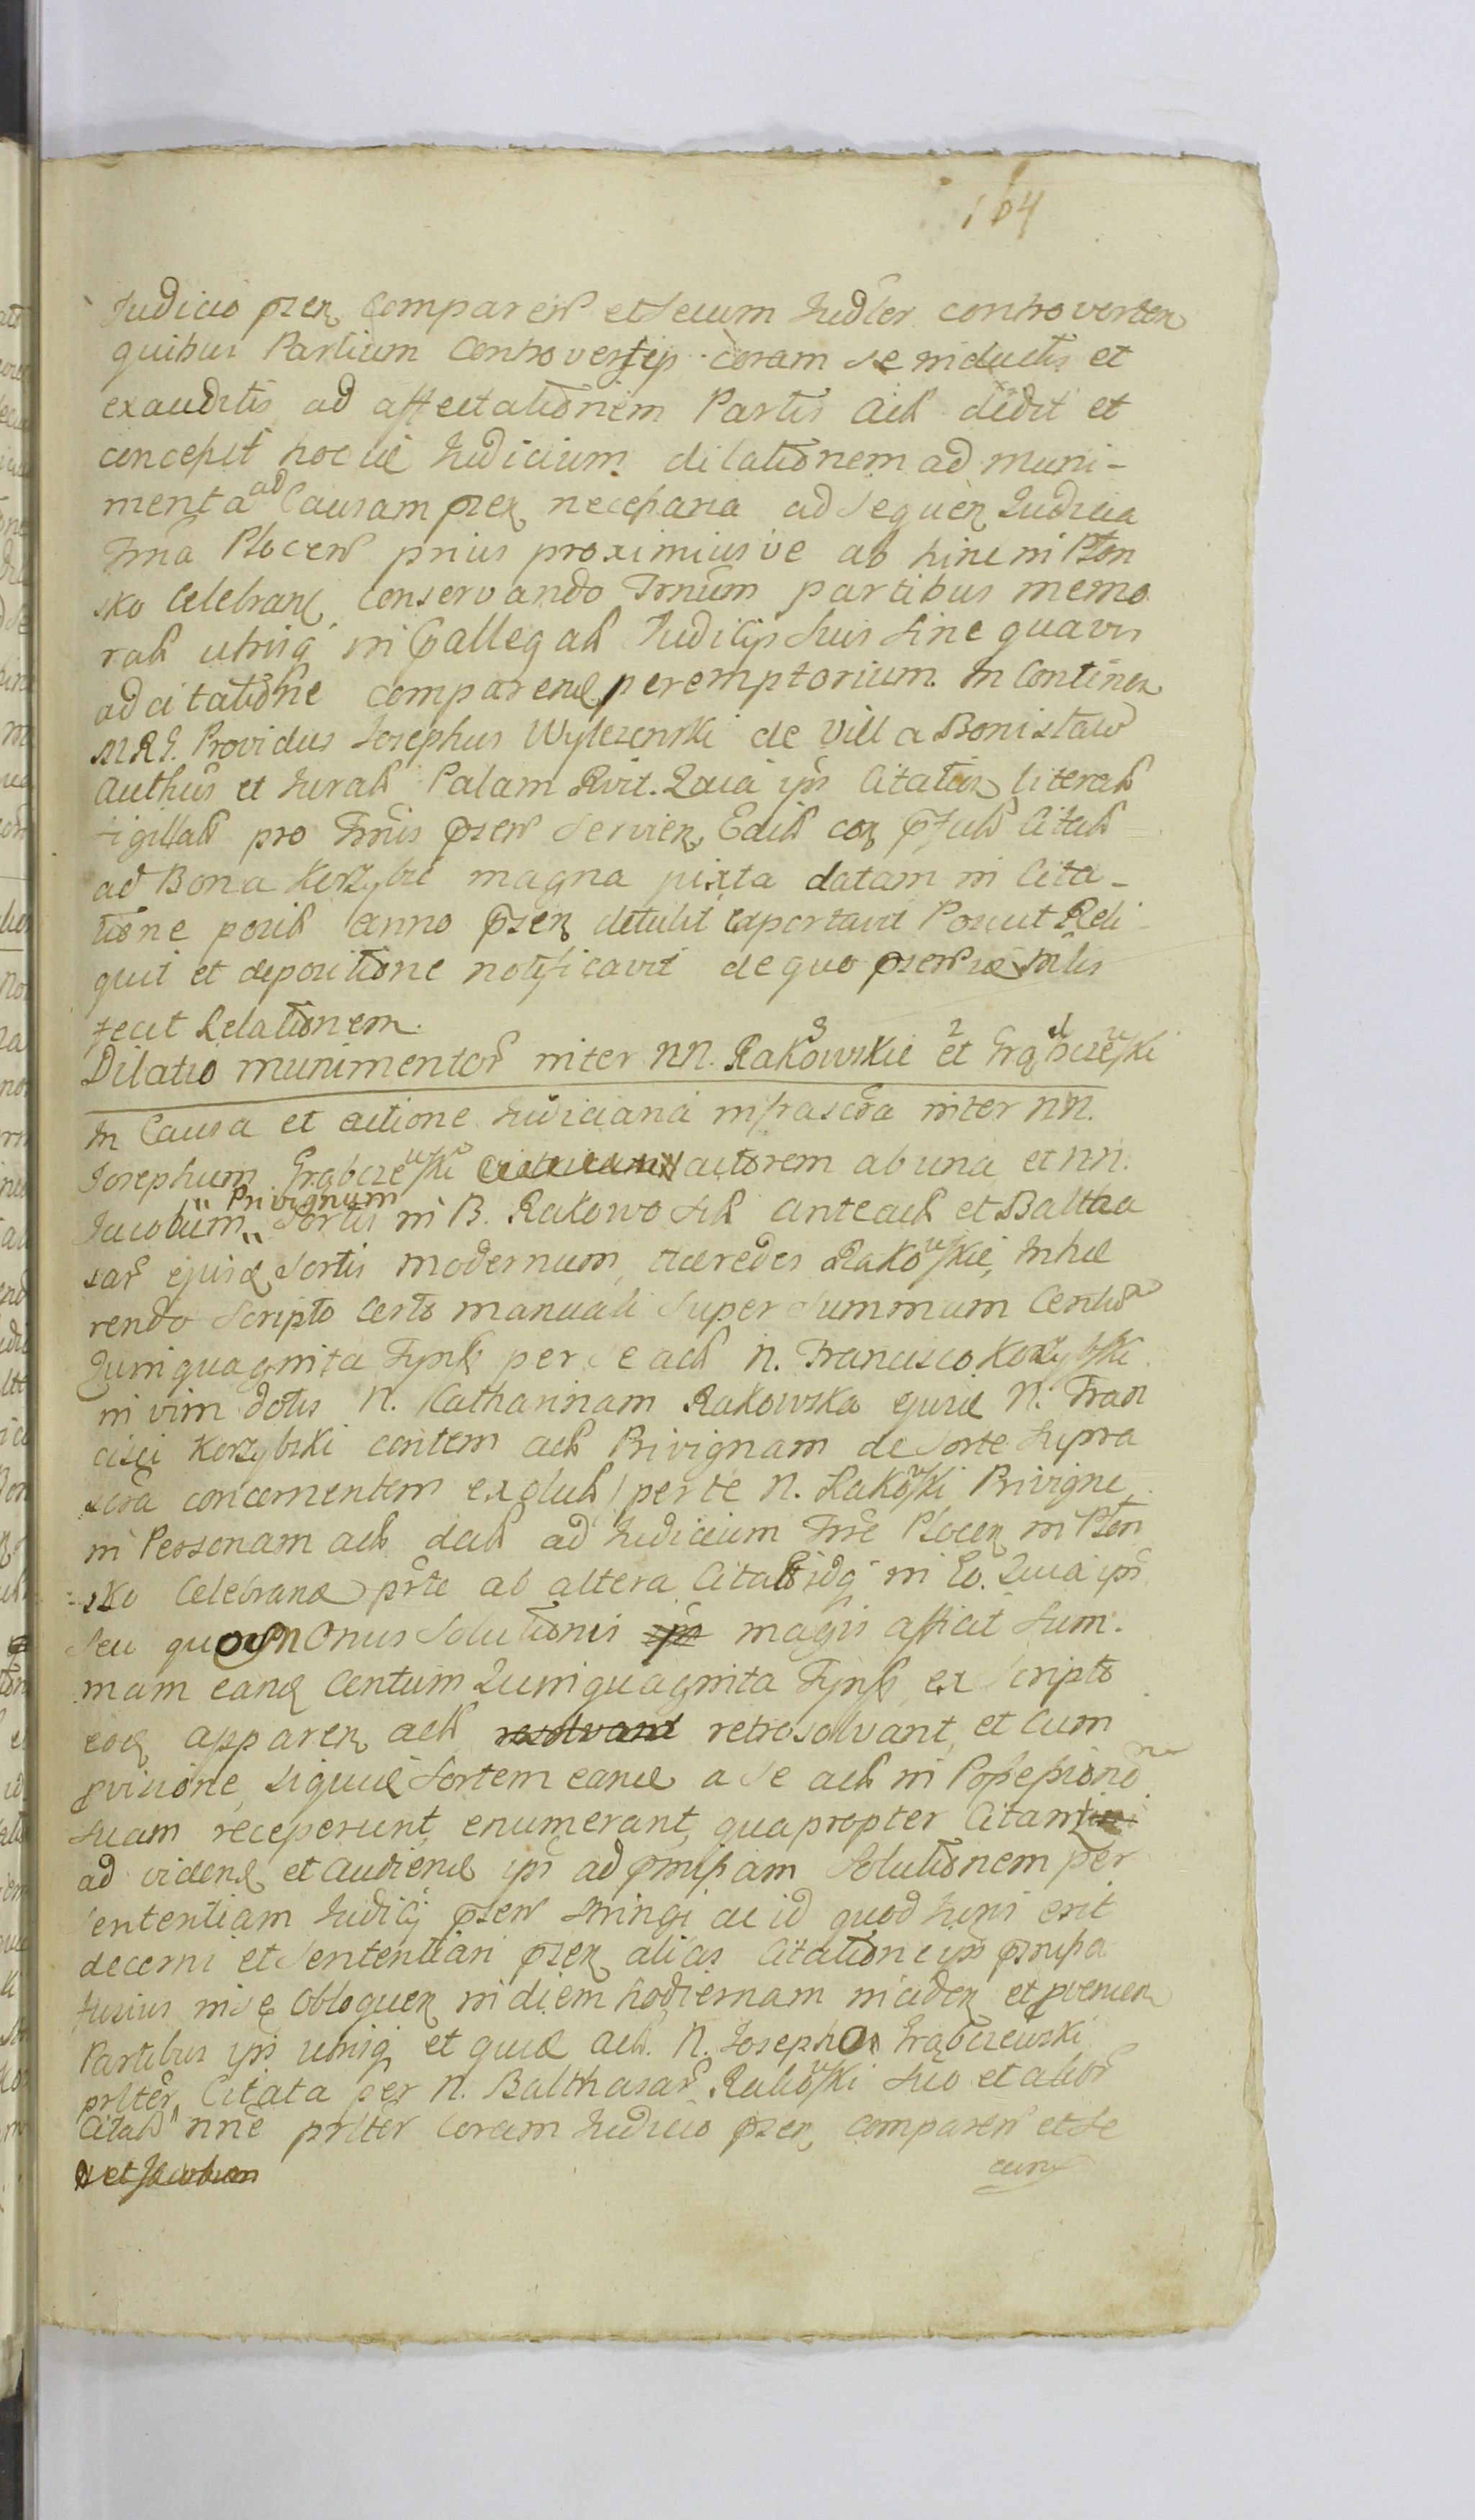 164
Judicio pzen comparen et secum Judler controverten
quibus Partium Controversijs coram se inductis et
exauditis ad affectationem Partis Act dedit et
concepit hocce Judicium dilationem ad muni-
menta ad Causam pzen necessaria ad sequen Judicia
Trna Plocen prius proximiusve ab hinc in Plon
sko Celebran conservando Trnum partibus memo
rat utriq in Gallegat Judicijs suis sine quavis
adcitatione comparend peremptorium. In Continen
M.R.G. Providus Josephus Wylezenski de Villa Bonislaw
Authus et Jurat Palam Rvit. Quia ips Citation literat
sigillat pro Trnis pzen servien Edit cor
ad Bona Korzybie magna juxta datam in Cita-
tione posit anno pzen detulit aportavit Posuit Reli-
quit et depositione notificavit de quo pzen
fecit Relationem.
Dilatio munimentor inter NN. Rakowskie et Grąbczewski
In Causa et actione Judiciaria infrascra inter NN.
Josephum Grąbczewski actorem ab una et NN.
Jacobum Privignum Sortis in B. Rakowo sit anteact et Baltha
sar ejusd sortis modernum, Haeredes Rakowskie, Inhae
rendo scripto certo manuali super summam Centu
Quinquaginta Tynf per se act N. Francisco Korzybski
in vim dotis N. Catharinam Rakowska ejusd N. Fran
cisci Korzybski contem act Privignam de sorte supra
scra concernentem exolut) per te N. Rakowski Privigne
in Personam act dat ad Judicium Trre Plocen in Plon
sko Celebrand prte ab altera Citat idq in Eo. Quia ips
seu quem Onus solutionis magis afficit Sum-
mam eand Centum Quinquaginta Tynf ex scripto
eod apparen act retrosolvant, et cum
pvisione, siquid sortem eand a se act in Possessione
suam receperunt, enumerant, quapropter Citant
ad vidend et audiend ips ad pmissam solutionem per
sententiam Judicij pzen stringi ac id quod Juris erit
decerni et sententiari pzen alias Citatione ips pmissa
fusius in se obloquen in diem hodiernam inciden et pvenien
Partibus ips utriq et quid act. N. Josephus Grąbczewski
prlter, Citata per N. Balthasar Rakowski suo et alior
Citat nne prlter coram Judicio pzen comparen et se
et Jacobum
cum